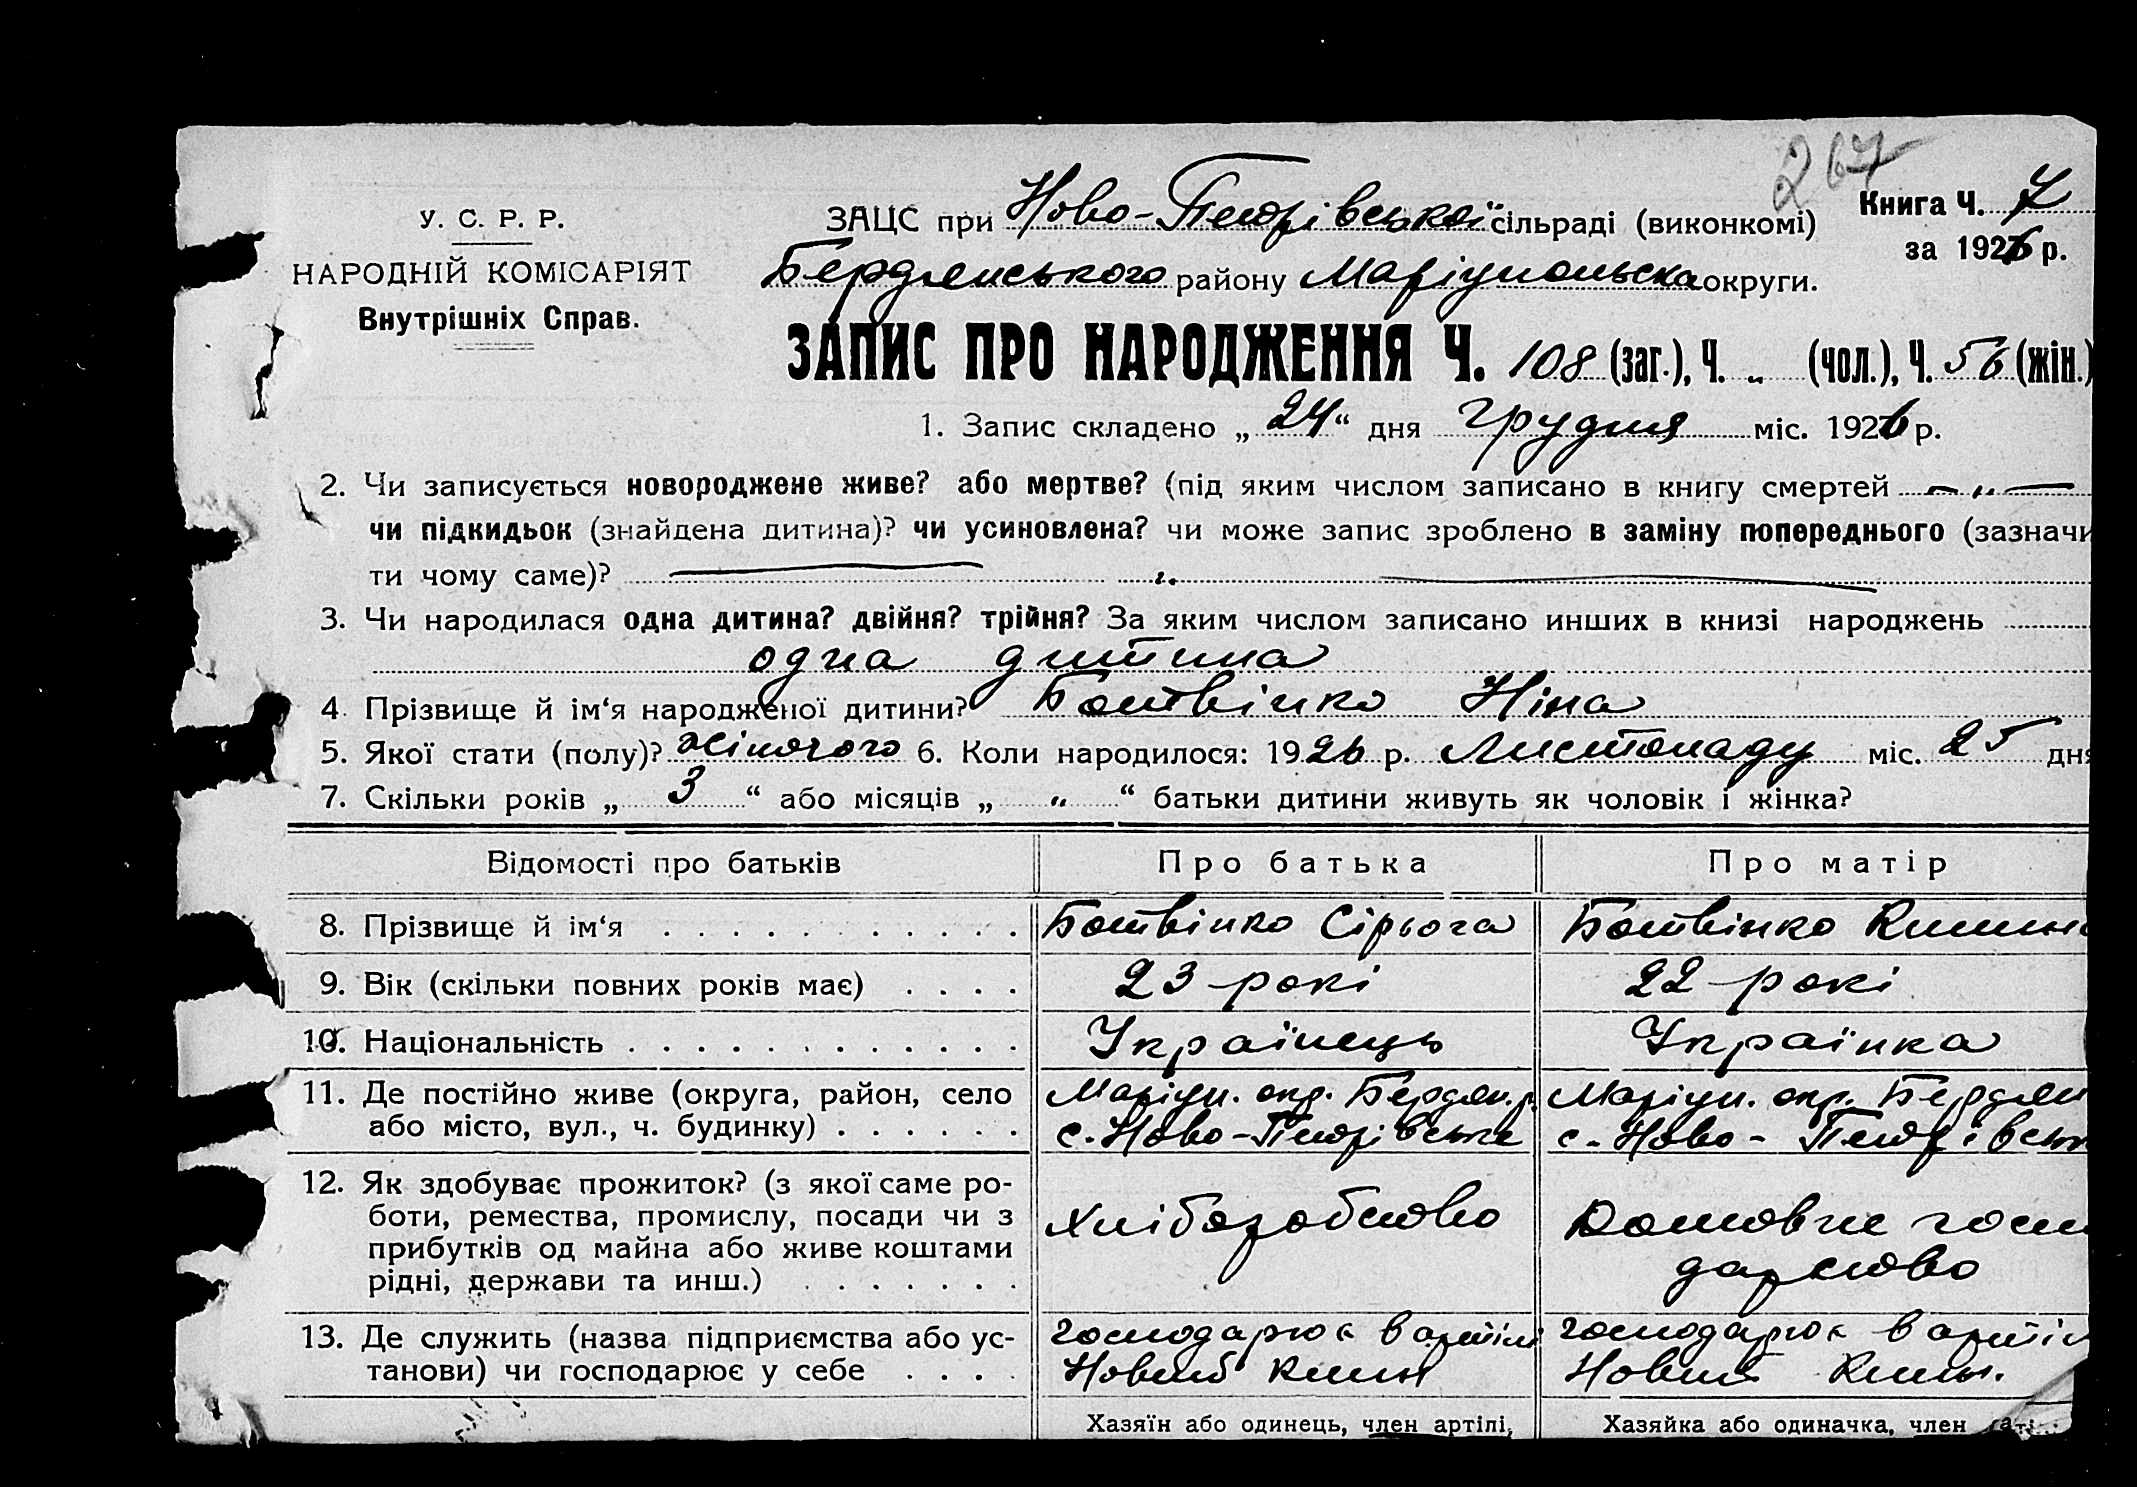 267
У. С. Р. Р.
НАРОДНІЙ КОМІСАРІЯТ
Внутрішніх Справ.
ЗАЦС при Ново-Петрівської сільраді (виконкомі)
Книга Ч. 7
за 1926 р.
Бердянського району Маріупольска округи.
ЗАПИС ПРО НАРОДЖЕННЯ Ч. 108 (заг.), Ч. „ (чол.), Ч. 56 (жін.)
1. Запис складено „ 24 “ дня Грудня міс. 1926 р.
2. Чи записується новороджене живе? або мертве? (під яким числом записано в книгу смертей — „ —
чи підкидьок (знайдена дитина)? чи усиновлена? чи може запис зроблено в заміну попереднього (зазначи
ти чому саме)? — „ —
3. Чи народилася одна дитина? двійня? трійня? За яким числом записано инших в книзі народжень
одна дитина
4. Прізвище й ім‘я народженої дитини? Ботвінко Ніна
5. Якої стати (полу)? жіночого 6. Коли народилося: 1926 р. Листопаду міс. 25 дня
7. Скільки років „ 3 “ або місяців „ „ “ батьки дитини живуть як чоловік і жінка?
Відомості про батьків Про батька Про матір
8. Прізвище й ім‘я Ботвінко Сірьога Ботвінко
9. Вік (скільки повних років має) 23 рокі 22 рокі
10. Національність Українець Українка
11. Де постійно живе (округа, район, село Маріуп. окр. Бердян. р. Маріуп. окр. Бердян
або місто, вул., ч. будинку) с. Ново-Петрівське с. Ново-Петрівськ
12. Як здобуває прожиток? (з якої саме ро-
боти, ремества, промислу, посади чи з Хліборобство Домовне госпо
прибутків од майна або живе коштами дарство
рідні, держави та инш.)
13. Де служить (назва підприємства або ус- господарює в артілі господарює в артіл
танови) чи господарює у себе Новий Новий
Хазяїн або одинець, член артілі, Хазяйка або одиначка, член